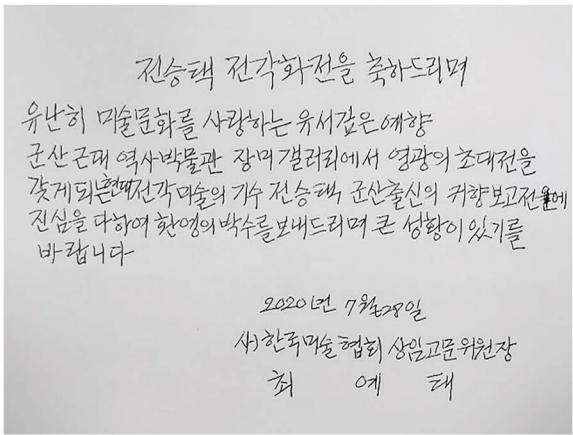 전승택 전각화전을 축하드리며
유난히 미술문화를 사랑하는 유서깊은 예향
군산근대 역사박물관 장미갤러리에서 영광의 초대전을
갖게되는현대전각미술의 기수 전승택 군산출신의 귀향보고전에
진심을 다하여 환영의 박수를 보내드리며 큰 성황이 있기를
바랍니다
2020년 7월28일
사)한국미술협회 상임고문위원장
최 예 태